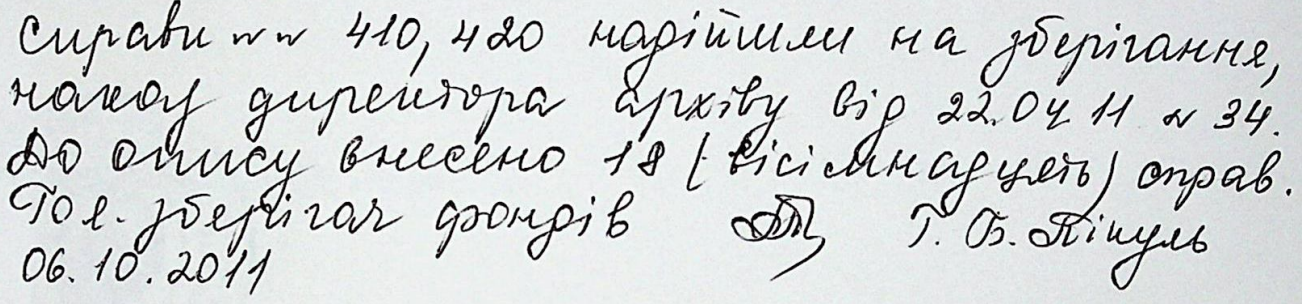 Справи №№ 410, 420 надійшли на зберігання,
наказ директора архіву від 22.04 11 № 34.
До опису внесено 18 (вісімнадцять) справ.
Гол. зберігач фондів Г. Б. Пікуль
06.10.2011